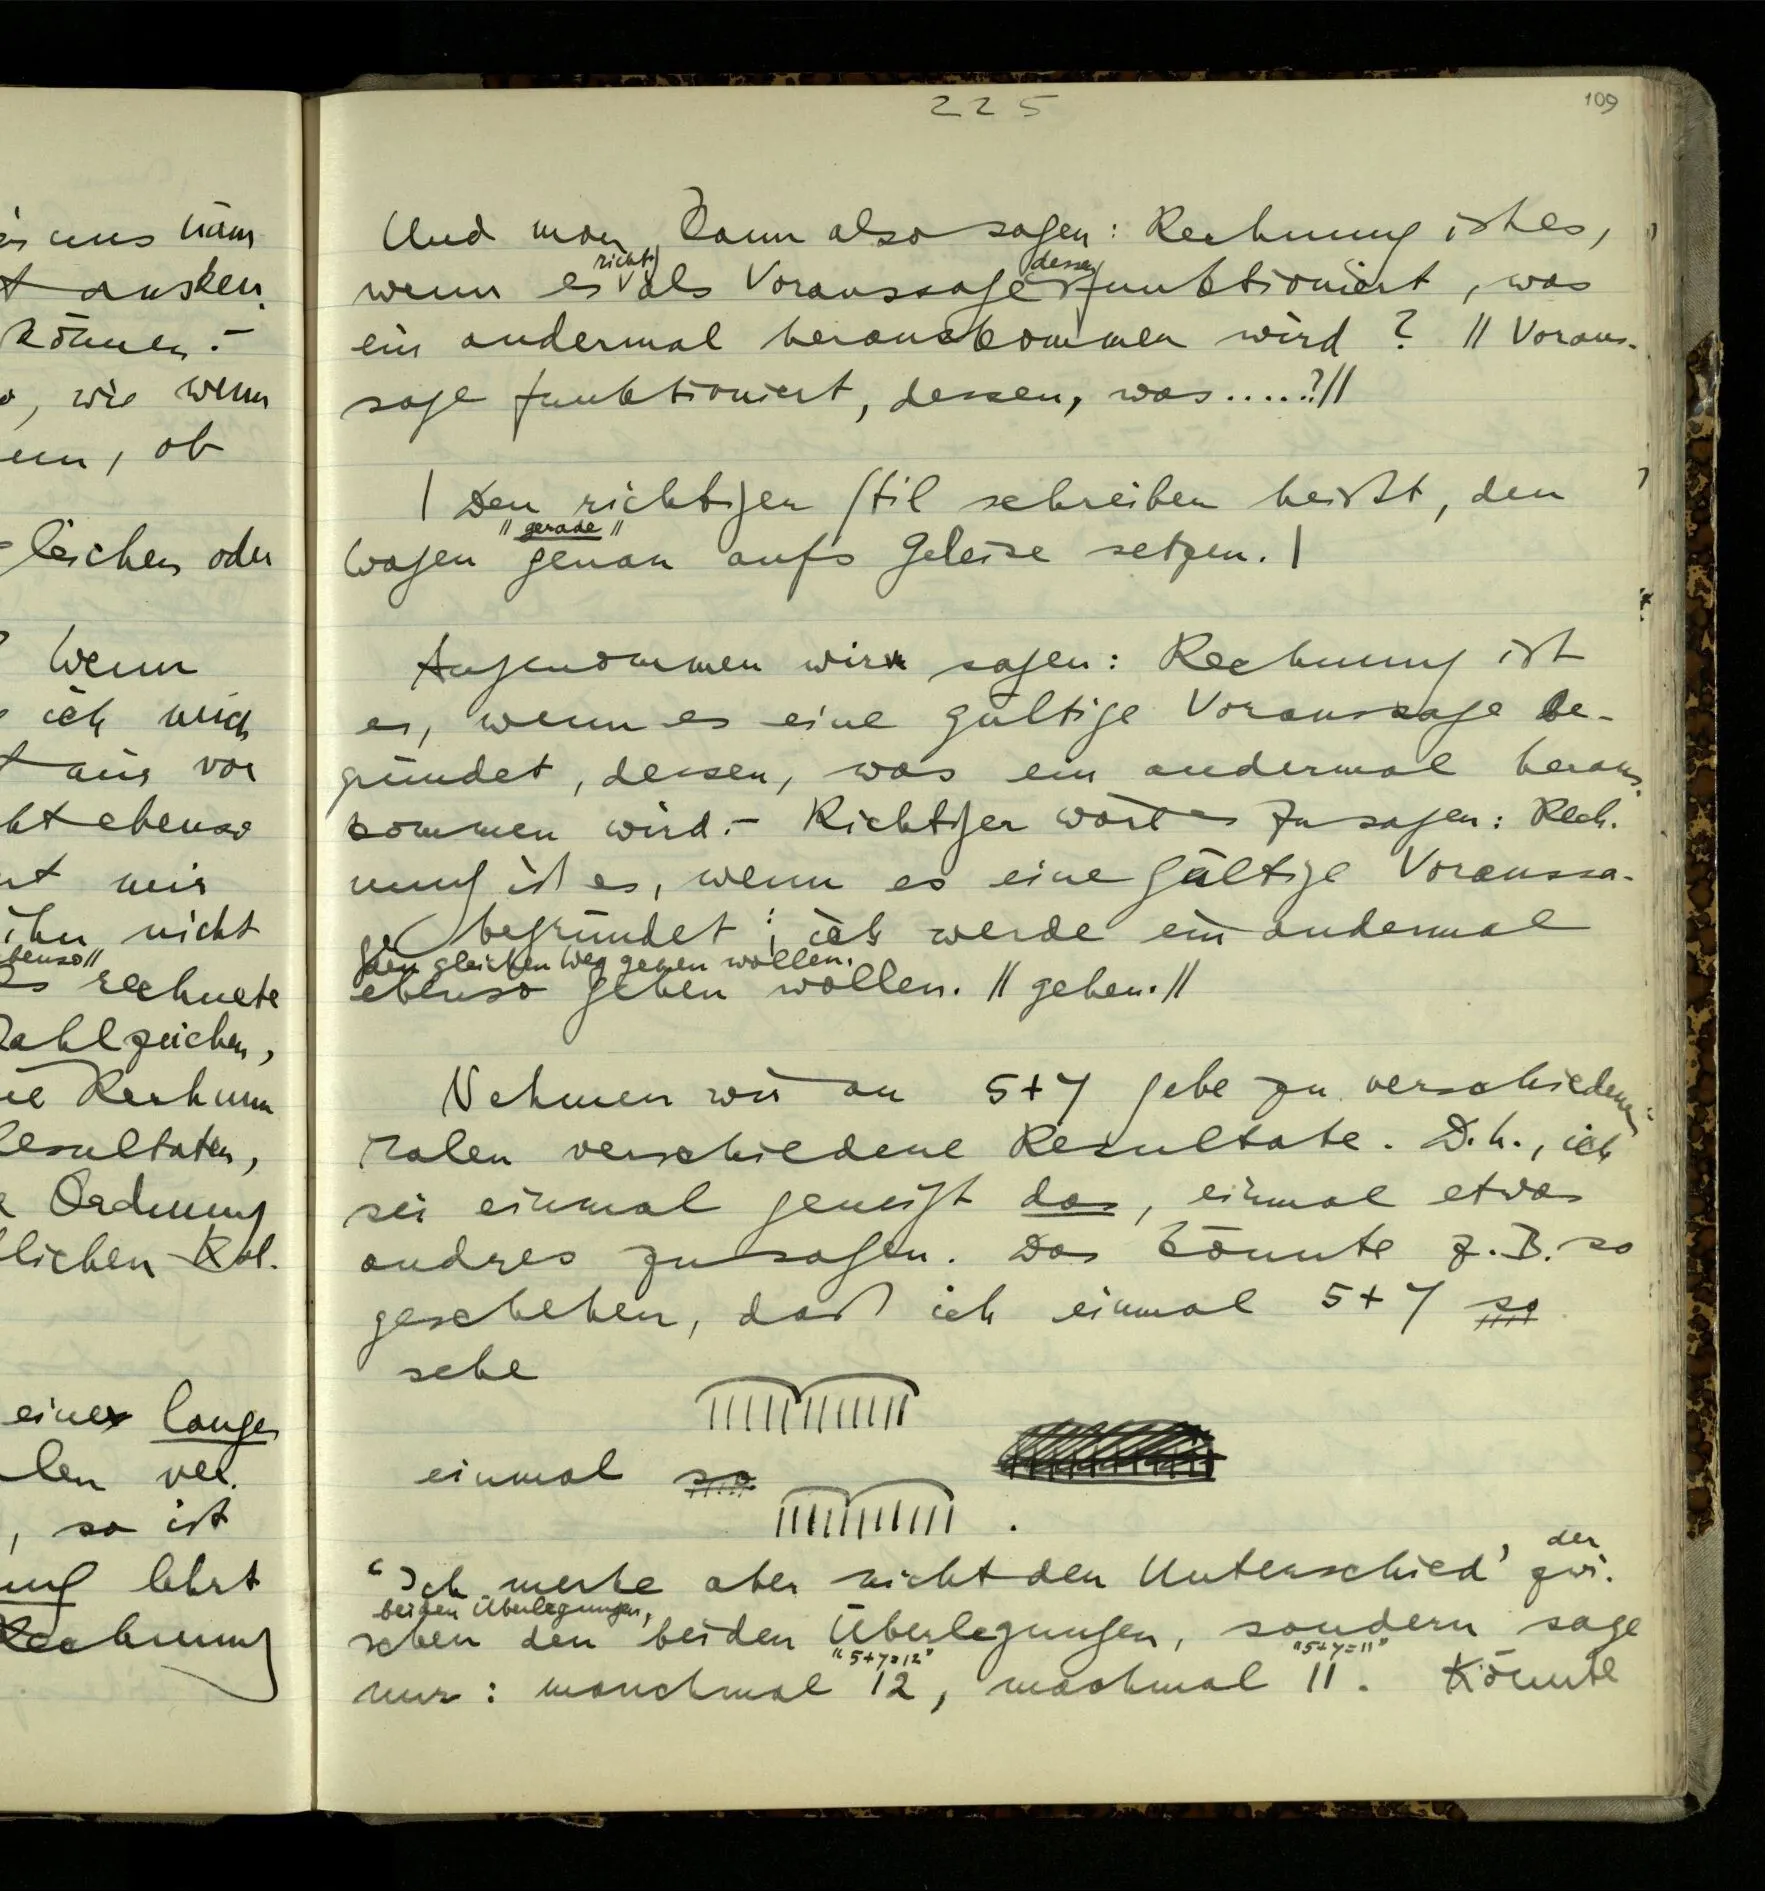 225
109
Und man kann also sagen: Rechnung ist es,
richtig dessen
wenn es als Voraussage funktioniert, was
ein andermal herauskommen wird? // Voraus-
sage funktioniert, dessen, was.....?//
| Den richtigen Stil schreiben heißt, den
// gerade //
Wagen genau aufs Geleise setzen. |
Angenommen wir sagen: Rechnung ist
es, wenn es eine gültige Voraussage be-
gründet, dessen, was ein andermal heraus-
kommen wird. – Richtiger wäre es zu sagen: Rech-
nung ist es, wenn es eine gültige Voraussa-
ge begründet: ich werde ein andermal
den gleichen Weg gehen wollen.
ebenso gehen wollen. // gehen. //
Nehmen wir an 5+7 gebe zu verschiedenen
Malen verschiedene Resultate. D.h., ich
sei einmal geneigt das, einmal etwas
andres zu sagen. Das könnte z.B. so
geschehen, daß ich einmal 5+7 so
sehe
einmal so
.
der
‘Ich merke aber nicht den Unterschied’ zwi-
beiden Überlegungen,
schen den beiden Überlegungen, sondern sage
"5+7=12" "5+7=11"
nur: manchmal 12, machmal 11. Könnte
aus
können. –
, wie wenn
, ob
gleichen oder
Wenn
ich mich
vor
ebenso
mir
ihn nicht
ebenso //
rechnete
Zahlzeichen,
Resultaten,
Ordnung
lichen
einer langen
, so ist
lehrt
Rechnung